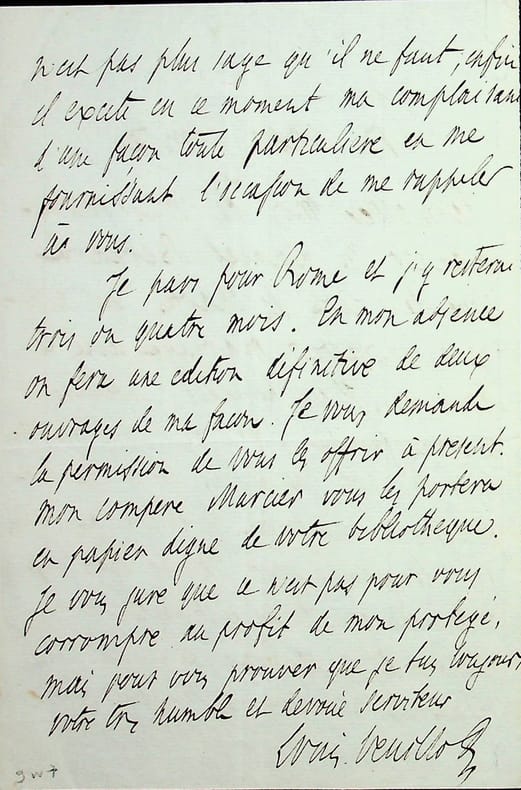 n'est pas plus sage qu'il ne faut, enfin
il excite en ce moment ma complaisance
d'une façon toute particuliere en me
fournissant l'occasion de me rappeler
à vous.
Je pars pour Rome et j'y resterai
trois ou quatre mois. En mon absence
on fera une edition définitive de deux
ouvrages de ma facon. Je vous demande
la permission de vous les offrir à present.
mon compere Marcier vous les portera
en papier digne de votre bibliotheque.
Je vous jure que ce n'est pas pour vous
corrompre au profit de mon protegé,
mais pour vous prouver que je suis toujours
votre très humble et devoué serviteur
Louis Veuillot
9 w 7